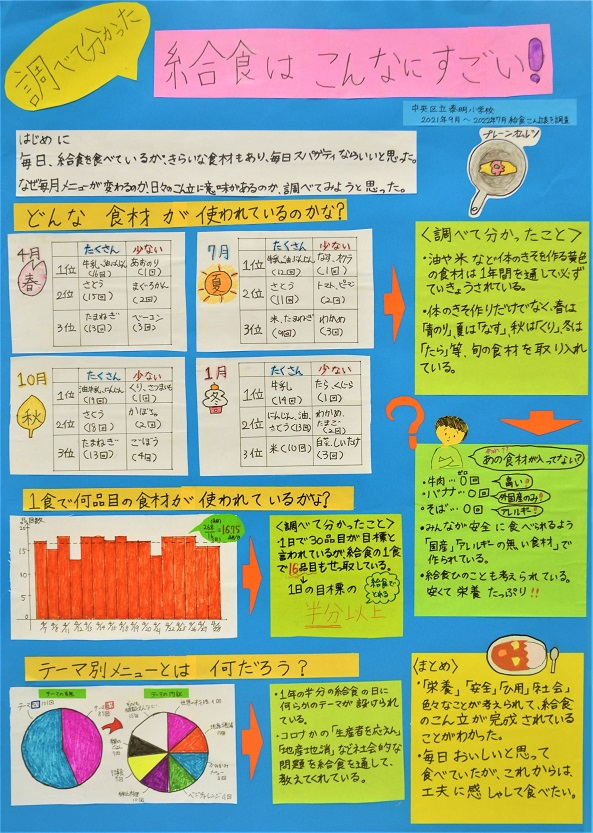 調べて分かった
給食は こんなにすごい!
中央区立泰明小学校
2021年9月~2022年7月給食こん立表を調査
プレーンオムレツ
はじめに
毎日、給食を食べているが、きらいな食材もあり、毎日スパゲティならいいと思った。
なぜ毎月メニューが変わるのか、日々のこん立に意味があるのか、調べてみようと思った。
どんな 食材 が 使われているのかな?
4月
春
たくさん 少ない
1位 牛乳、油、にんじん (16回) あおのり (1回)
2位 さとう (15回) まぐろかん (2回)
3位 たまねぎ (13回) ベーコン (3回)
7月
夏
たくさん 少ない
1位 牛乳、油、にんじん (12回) なす、わかう (1回)
2位 さとう (11回) トマト、ピーマン (2回)
3位 米、たまねぎ (9回) わかめ (3回)
<調べて分かったこと>
・油や米など体のきそを作る黄色
の食材は1年間を通して必ず
ていきょうされている。
・体のきそ作りだけでなく、春は
「青のり」、夏は「なす」秋は「くり」、冬は
「たら」等、旬の食材を取り入れ
ている。
10月
秋
たくさん 少ない
1位 油、牛乳、にんじん (19回) くり、さつまいも (1回)
2位 さとう (18回) かぼちゃ (2回)
3位 たまねぎ (13回) ごぼう (4回)
1月
冬
たくさん 少ない
1位 牛乳 (14回) たら、くじら (1回)
2位 にんじん、油、さとう (13回) わかめ、たまご (2回)
3位 米 (10回) 白菜、しいたけ (3回)
?
あの食材が入ってない?
・牛肉…0回 高い!!
・バナナ…0回 外国産のみ!!
・そば…0回 アレルギー!!
・みんなが安全に食べられるよう
「国産」「アレルギーの無い食材」で
作られている。
・給食ひのことも考えられている。
安くて栄養 たっぷり!!
1食で何品目の食材が 使われて いるかな?
20
15
10
5
0
16.75
<調べて分かったこと>
1日で30品目が目標と
言われているが、給食の1食
で16品目もせっ取している。
1日の目標の
給食でとれる
半分以上
テーマ別メニューとは 何だろう?
テーマの有無
テーマの内訳
・1年の半分の給食の日に
何らかのテーマが設けられ
ている。
・コロナかの「生産者を応えん」
「地産地消」など社会的な
問題を給食を通して、
教えてくれている。
<まとめ>
・「栄養」「安全」「ひ用」「社会」
色々なことが考えられて、給食
のこん立が完成されている
ことがわかった。
・毎日おいしいと思って
食べていたが、これからは、
工夫に感しゃして食べたい。